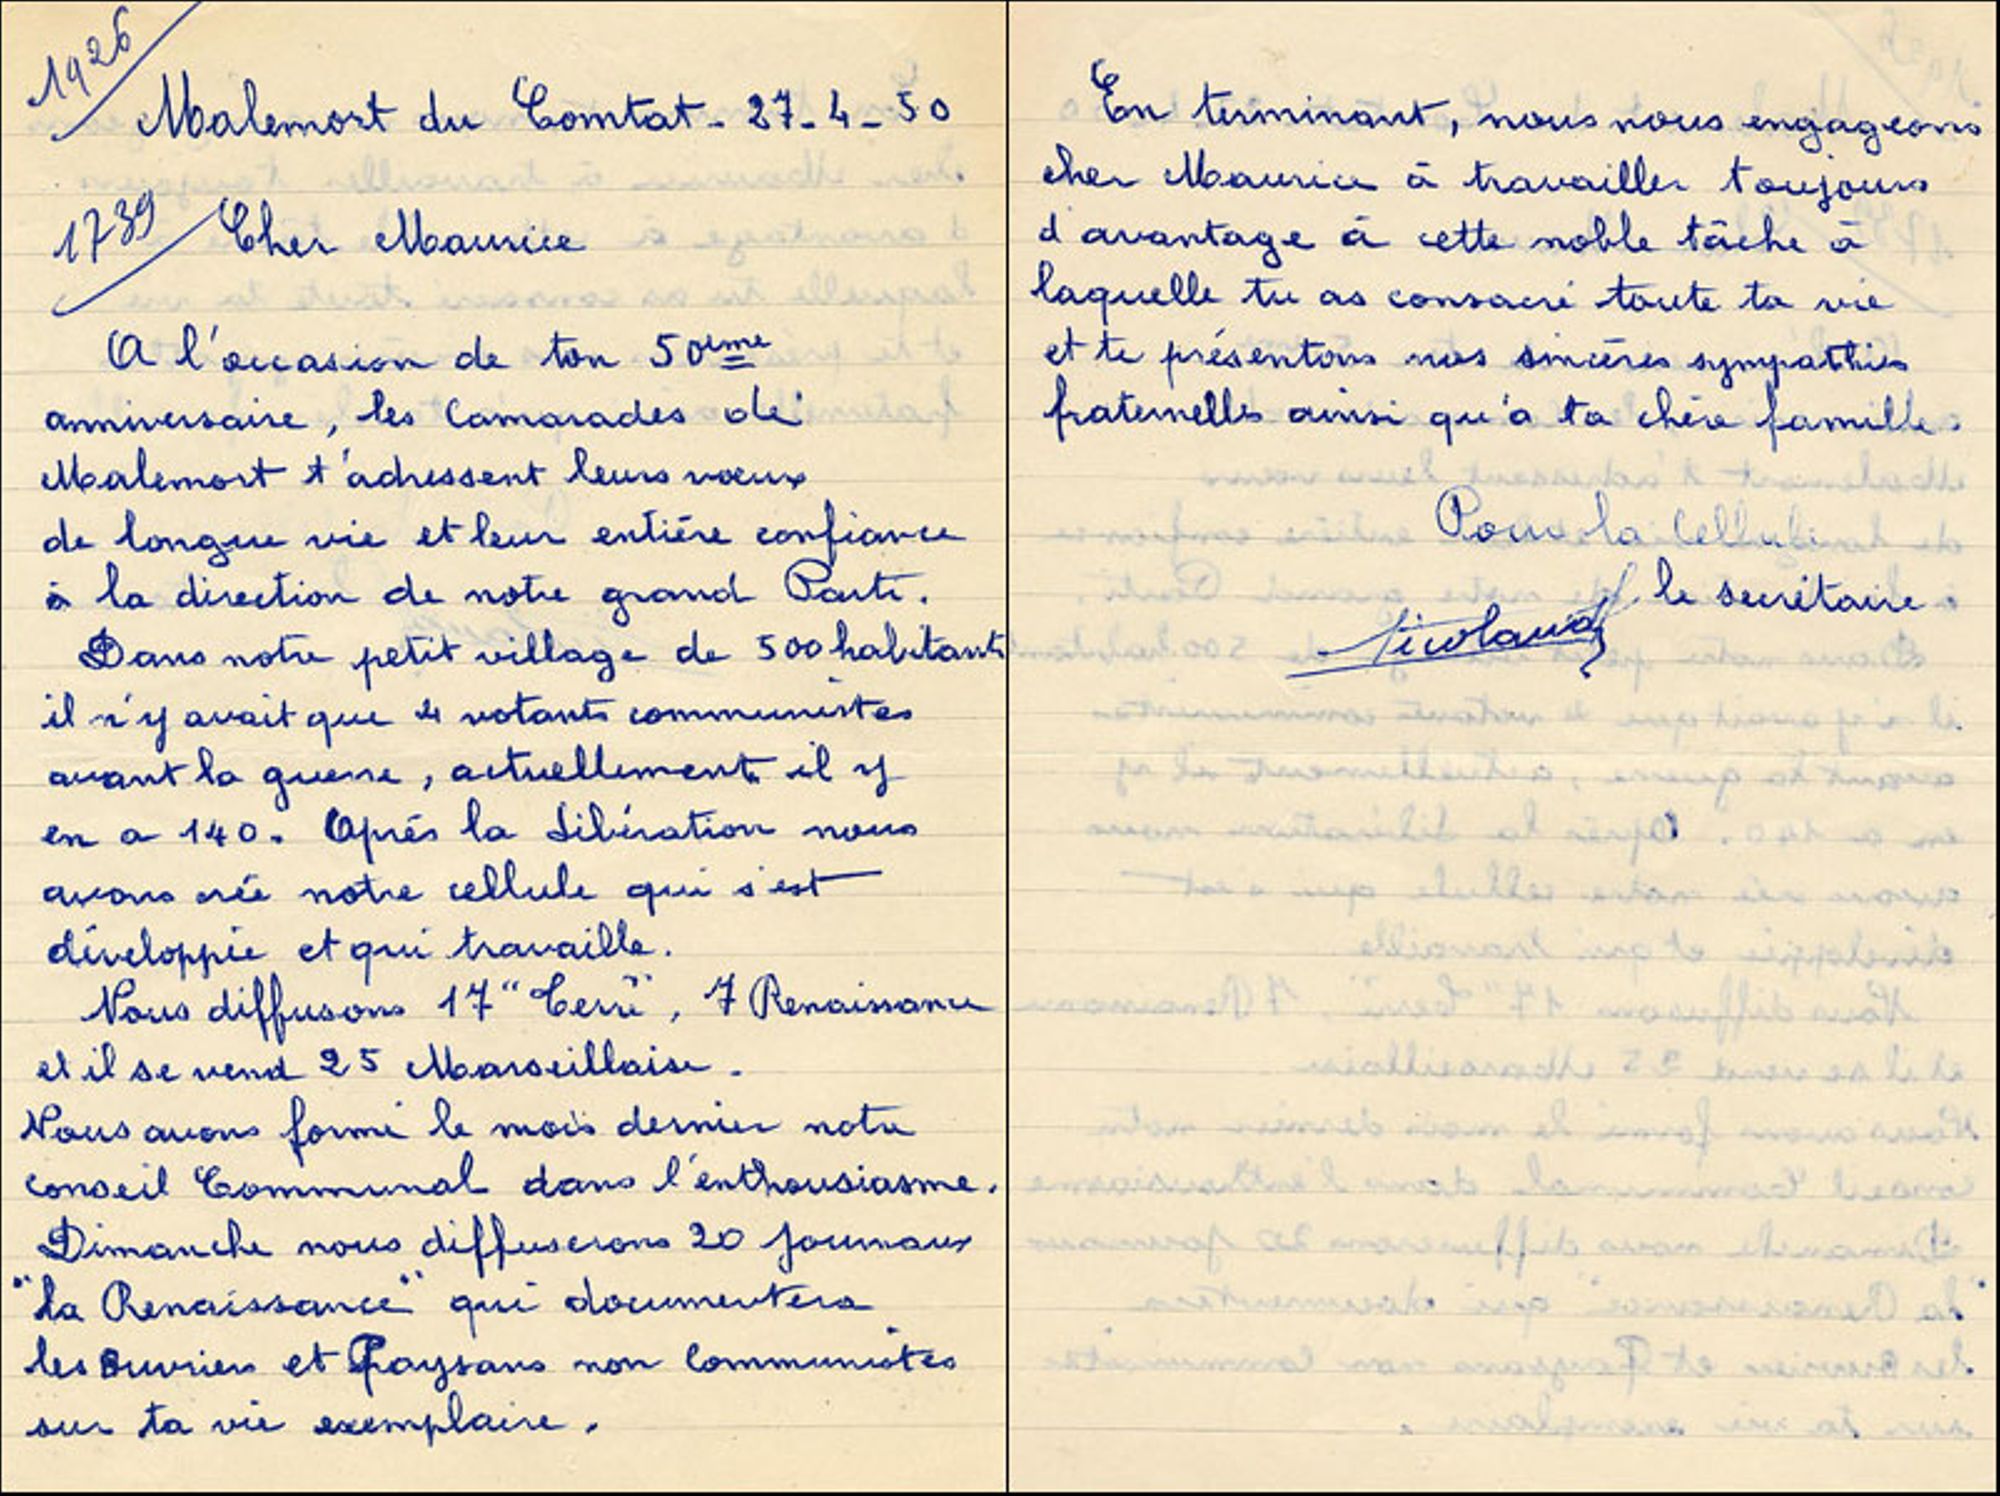 1926
Malemort du Comtat - 27-4-50
1739
Cher Maurice
A l'occasion de ton 50ème
anniversaire, les Camarades de
Malemort t'adressent leurs voeux
de longue vie et leur entière confiance
à la direction de notre grand Parti.
Dans notre petit village de 500 habitants
il n'y avait que 4 votants communistes
avant la guerre, actuellement il y
en a 140. Après la Libération nous
avons crée notre cellule qui s'est
développée et qui travaille.
Nous diffusons 17 "Terre", 7 Renaissance
et il se vend 25 Marseillaise.
Nous avons formé le mois dernier notre
conseil Communal dans l'enthousiasme.
Dimanche nous diffuserons 20 journaux
"la Renaissance" qui documentera
les ouvriers et Paysans non Communistes
sur ta vie exemplaire.
En terminant, nous nous engageons
cher Maurice à travailler toujours
d'avantage à cette noble tâche à
laquelle tu as consacré toute ta vie
et te présentons nos sincères sympathies
fraternelles ainsi qu'à ta chère famille.
Pour la Cellule
le secrétaire